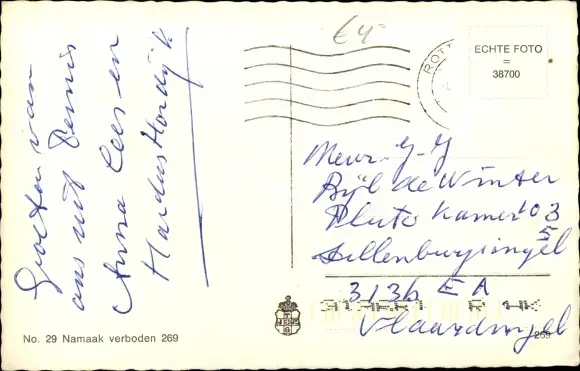 €4-
ROTT
ECHTE FOTO
=
38700
Groeten van
ons uit Pernis
Anna Cees en
Hordijk
Mevr. G-G
Bijl de Winter
Pluto Kamer 103
5
Dillenburgsingel
3136 EA
Vlaardingen
No. 29 Namaak verboden 269
269